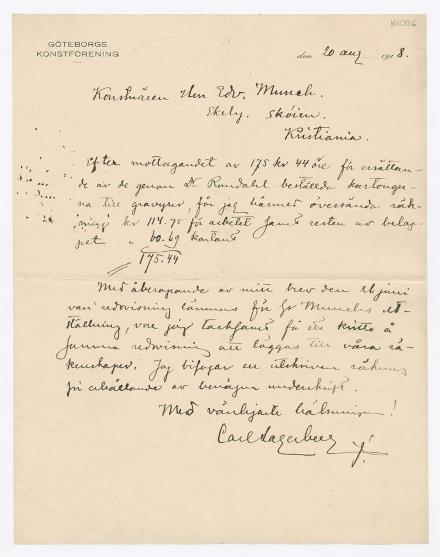 K4096
GÖTEBORGS
KONSTFÖRENING
den 20 aug 1918.
Konstnären Herr Edv. Munch.
Ekely. Sköien.
Kristiania.
Efter mottagandet av 175 kr 44 öre för ersättan-
de av de genom Dr Romdahl beställda kartonger-
na till gravyrer, får jag härmed översända räk-
ning kr 114.75 för arbetet jämte resten av belop-
pet " 60.69 kontant
175.44
Med åberopande av mitt brev den 26 juni
vari redovisning lämnas för Hr Munchs ut-
ställning, vore jag tacksam få ett kvitto å
samma redovisning att läggas till våra rä-
kenskaper. Jag bifogar en utskriven räkning
för erhållande av benägen underskrift.
Med vänligaste hälsningar!
Carl Lagerberg